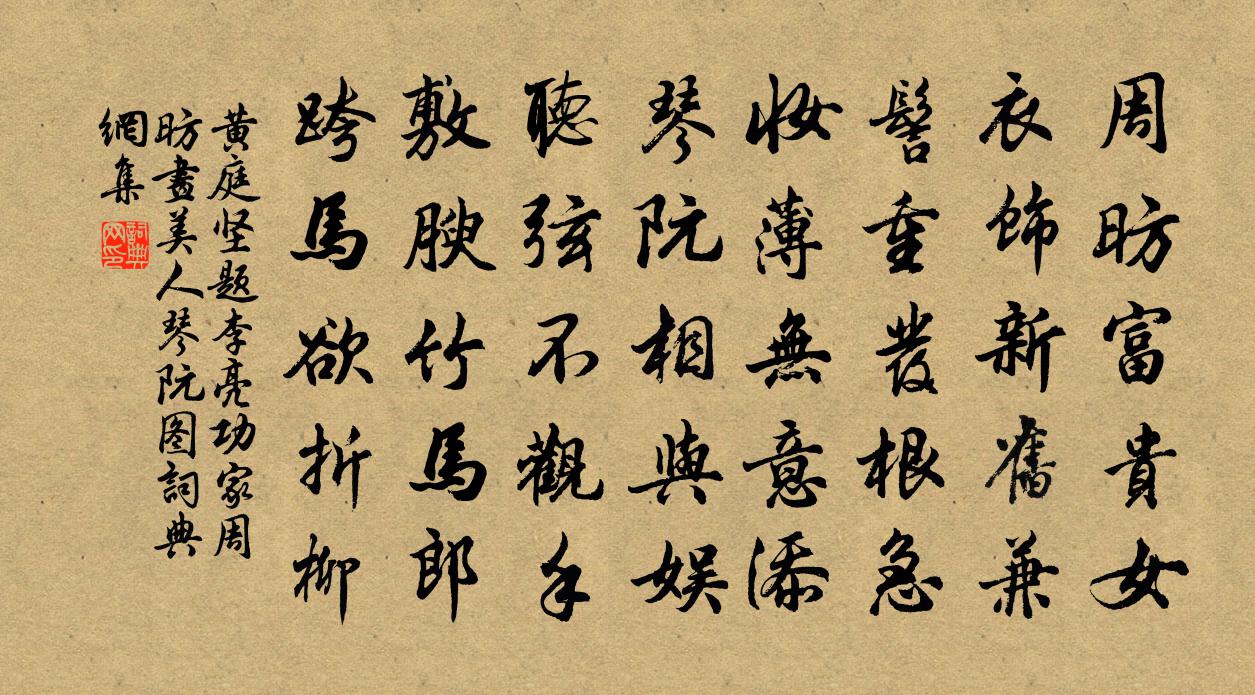 周昉富貴女
衣飾新舊兼
髻重發根急
妝薄無意添
琴阮相與娱
聽弦不觀手
敷腴竹馬郎
跨馬欲折柳
黃庭坚题李亮功家周
昉畫美人琴阮图詞典
網集
詞典
网印